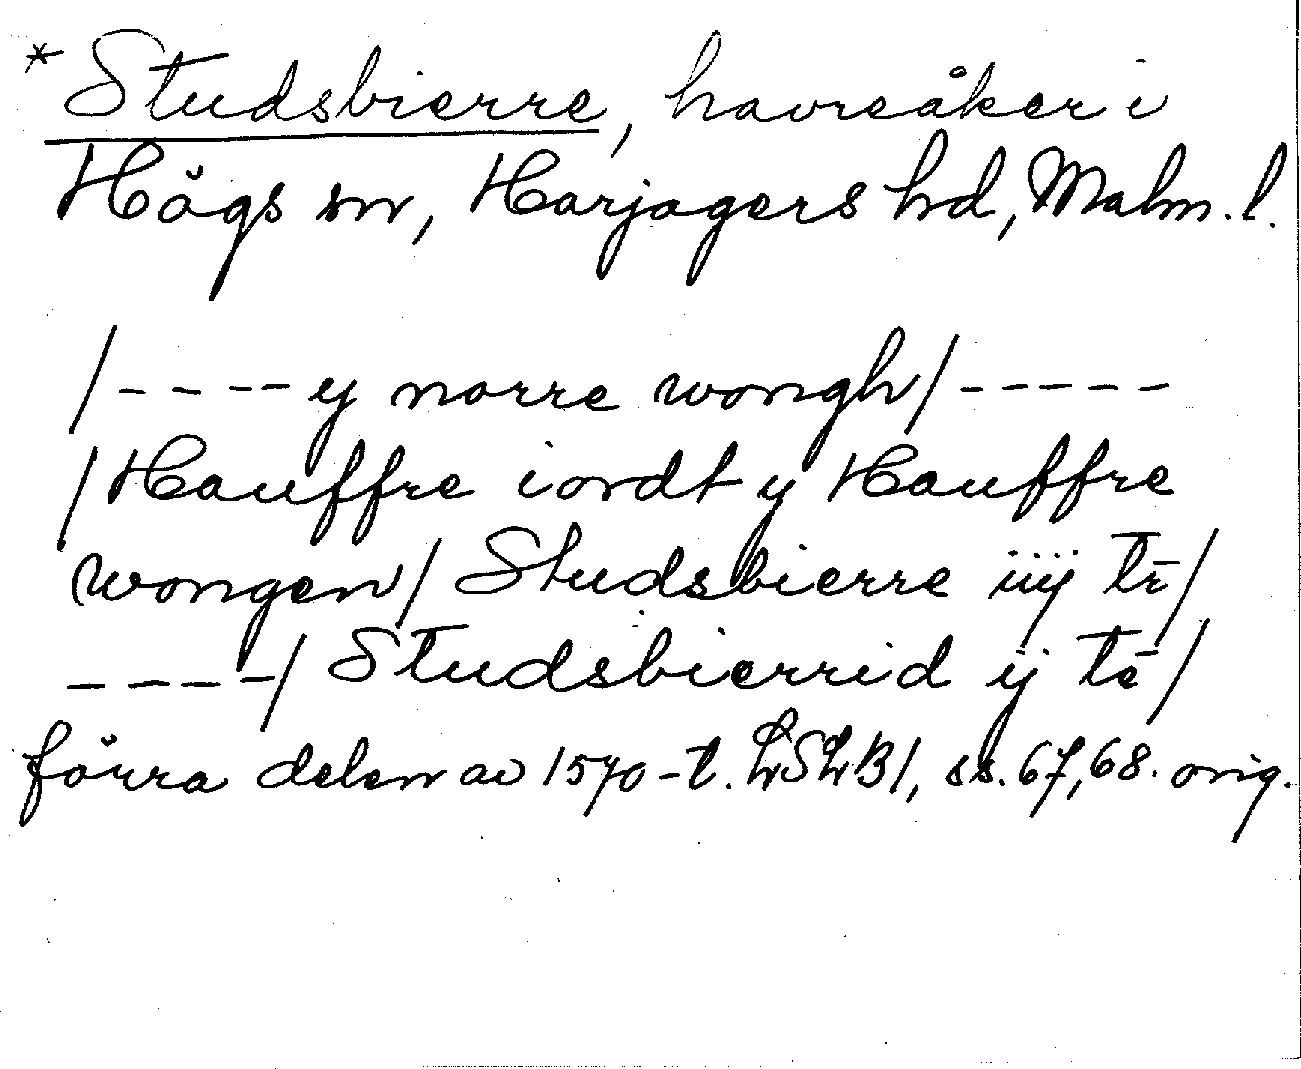 *Studsbierre, havreåker i
Högs sn, Harjagers hd, Malm. l.
/----y norre wongh/-----
/Hauffre iordt y Hauffre
wongen/ Studsbierre iiij tr̄/
----/ Studsbierrid ij tē/
förra delen av 1570-t. LSLB1, ss. 67, 68. orig.